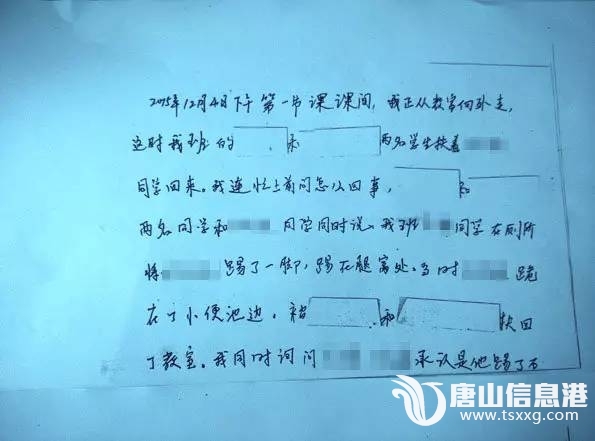 2015年12月4日下午第一节课课间,我正从教室向外走,
这时我班的 和 两名学生扶着
同学回来。我连忙上前问怎么回事, 和
两名同学和 同学同时说,我班 同学在厕所
将 踢了一脚,踢在腿窝处。当时 跪
在了小便池边,被 和 扶回
了教室。我同时询问 承认是他踢了
唐山信息港
www.tsxxg.com